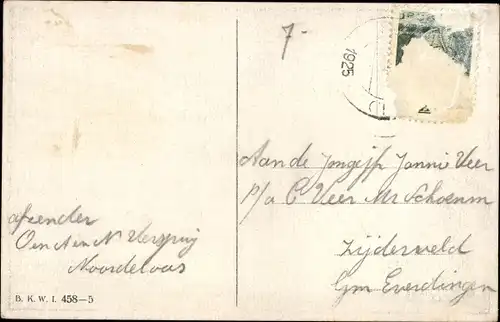 7-
1925
Aan de Jongejff Jannie Veer
P/a C Veer Mr Schoenm
Zijderveld
Gm Everdingen
afzender
O en A en N Verspuij
Noordeloos
B. K. W. I. 458-5